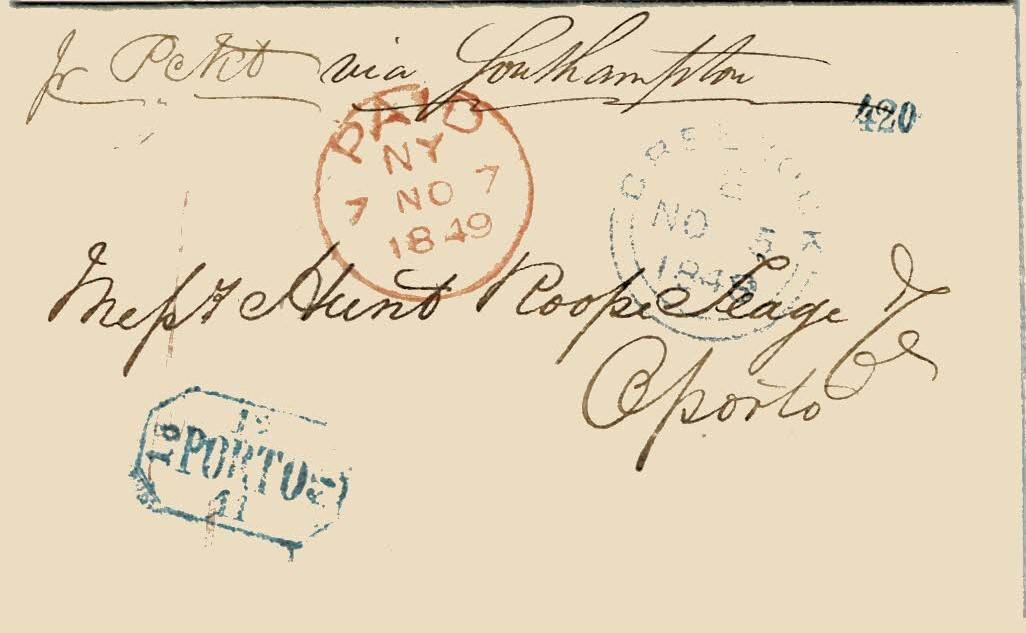 pr Pckt via Southampton
420
PAID
NY
7 NO 7
1849
GREENOCK
E
NO 5
1849
Messrs Hunt Roope Teage & Co
Oporto
PORTO
11